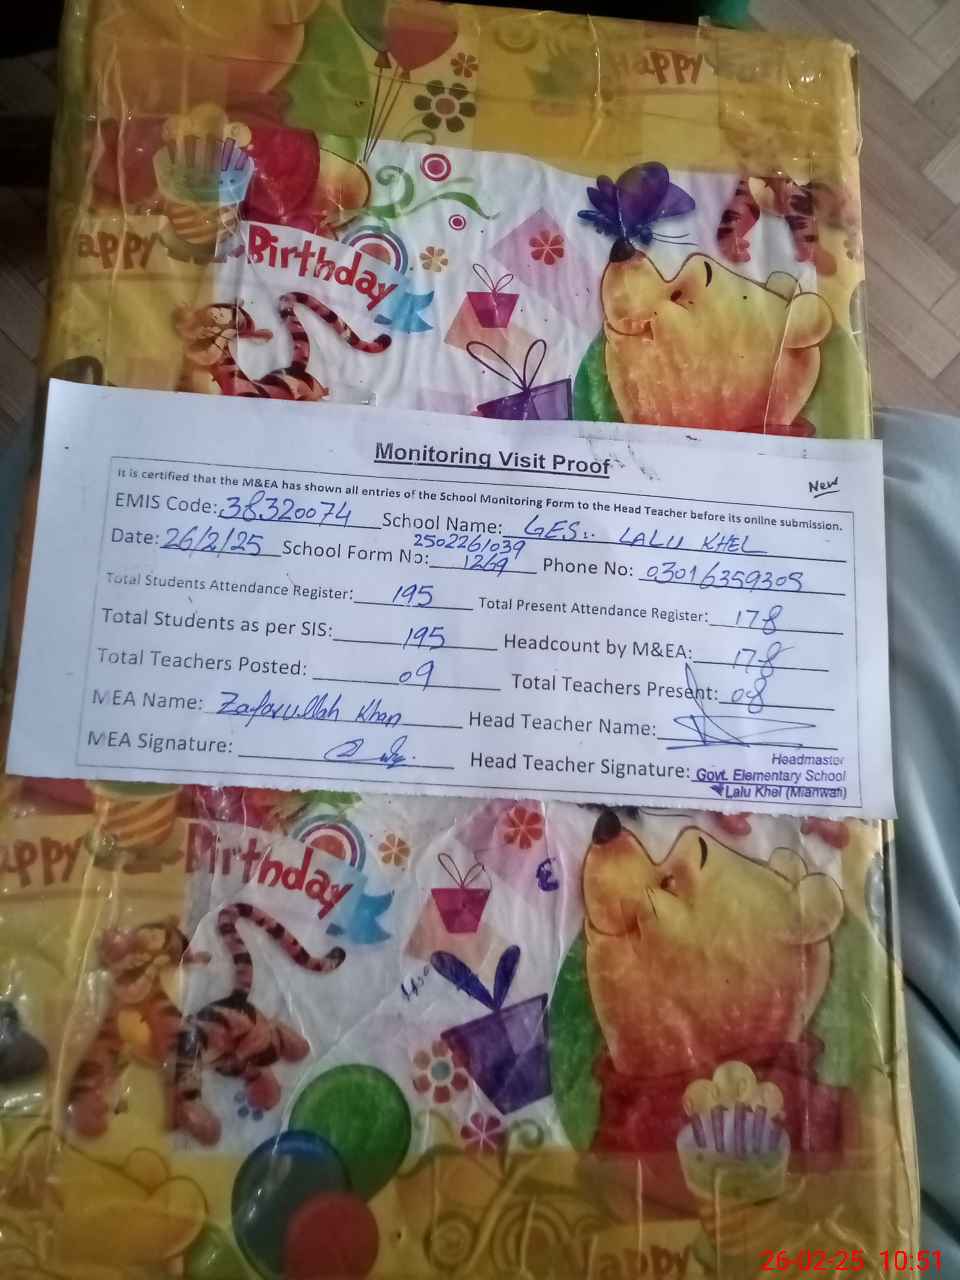 Happy
Birthday
appy
Monitoring Visit Proof
New
It is certified that the M&EA has shown all entries of the School Monitoring Form to the Head Teacher before its online submission.
EMIS Code: 38320074 School Name: GES. LALU KHEL
Date: 26/2/25 School Form No: 2502261039 1269 Phone No: 03016359305
Total Students Attendance Register: 195 Total Present Attendance Register: 178
Total Students as per SIS: 195 Headcount by M&EA: 178
Total Teachers Posted: 09 Total Teachers Present: 08
MEA Name: Zafarullah Khan Head Teacher Name:
MEA Signature: Head Teacher Signature:
Headmaster
Govt. Elementary School
Lalu Khel (Mianwali)
appy
Birthday
Happy
26-02-25 10:51